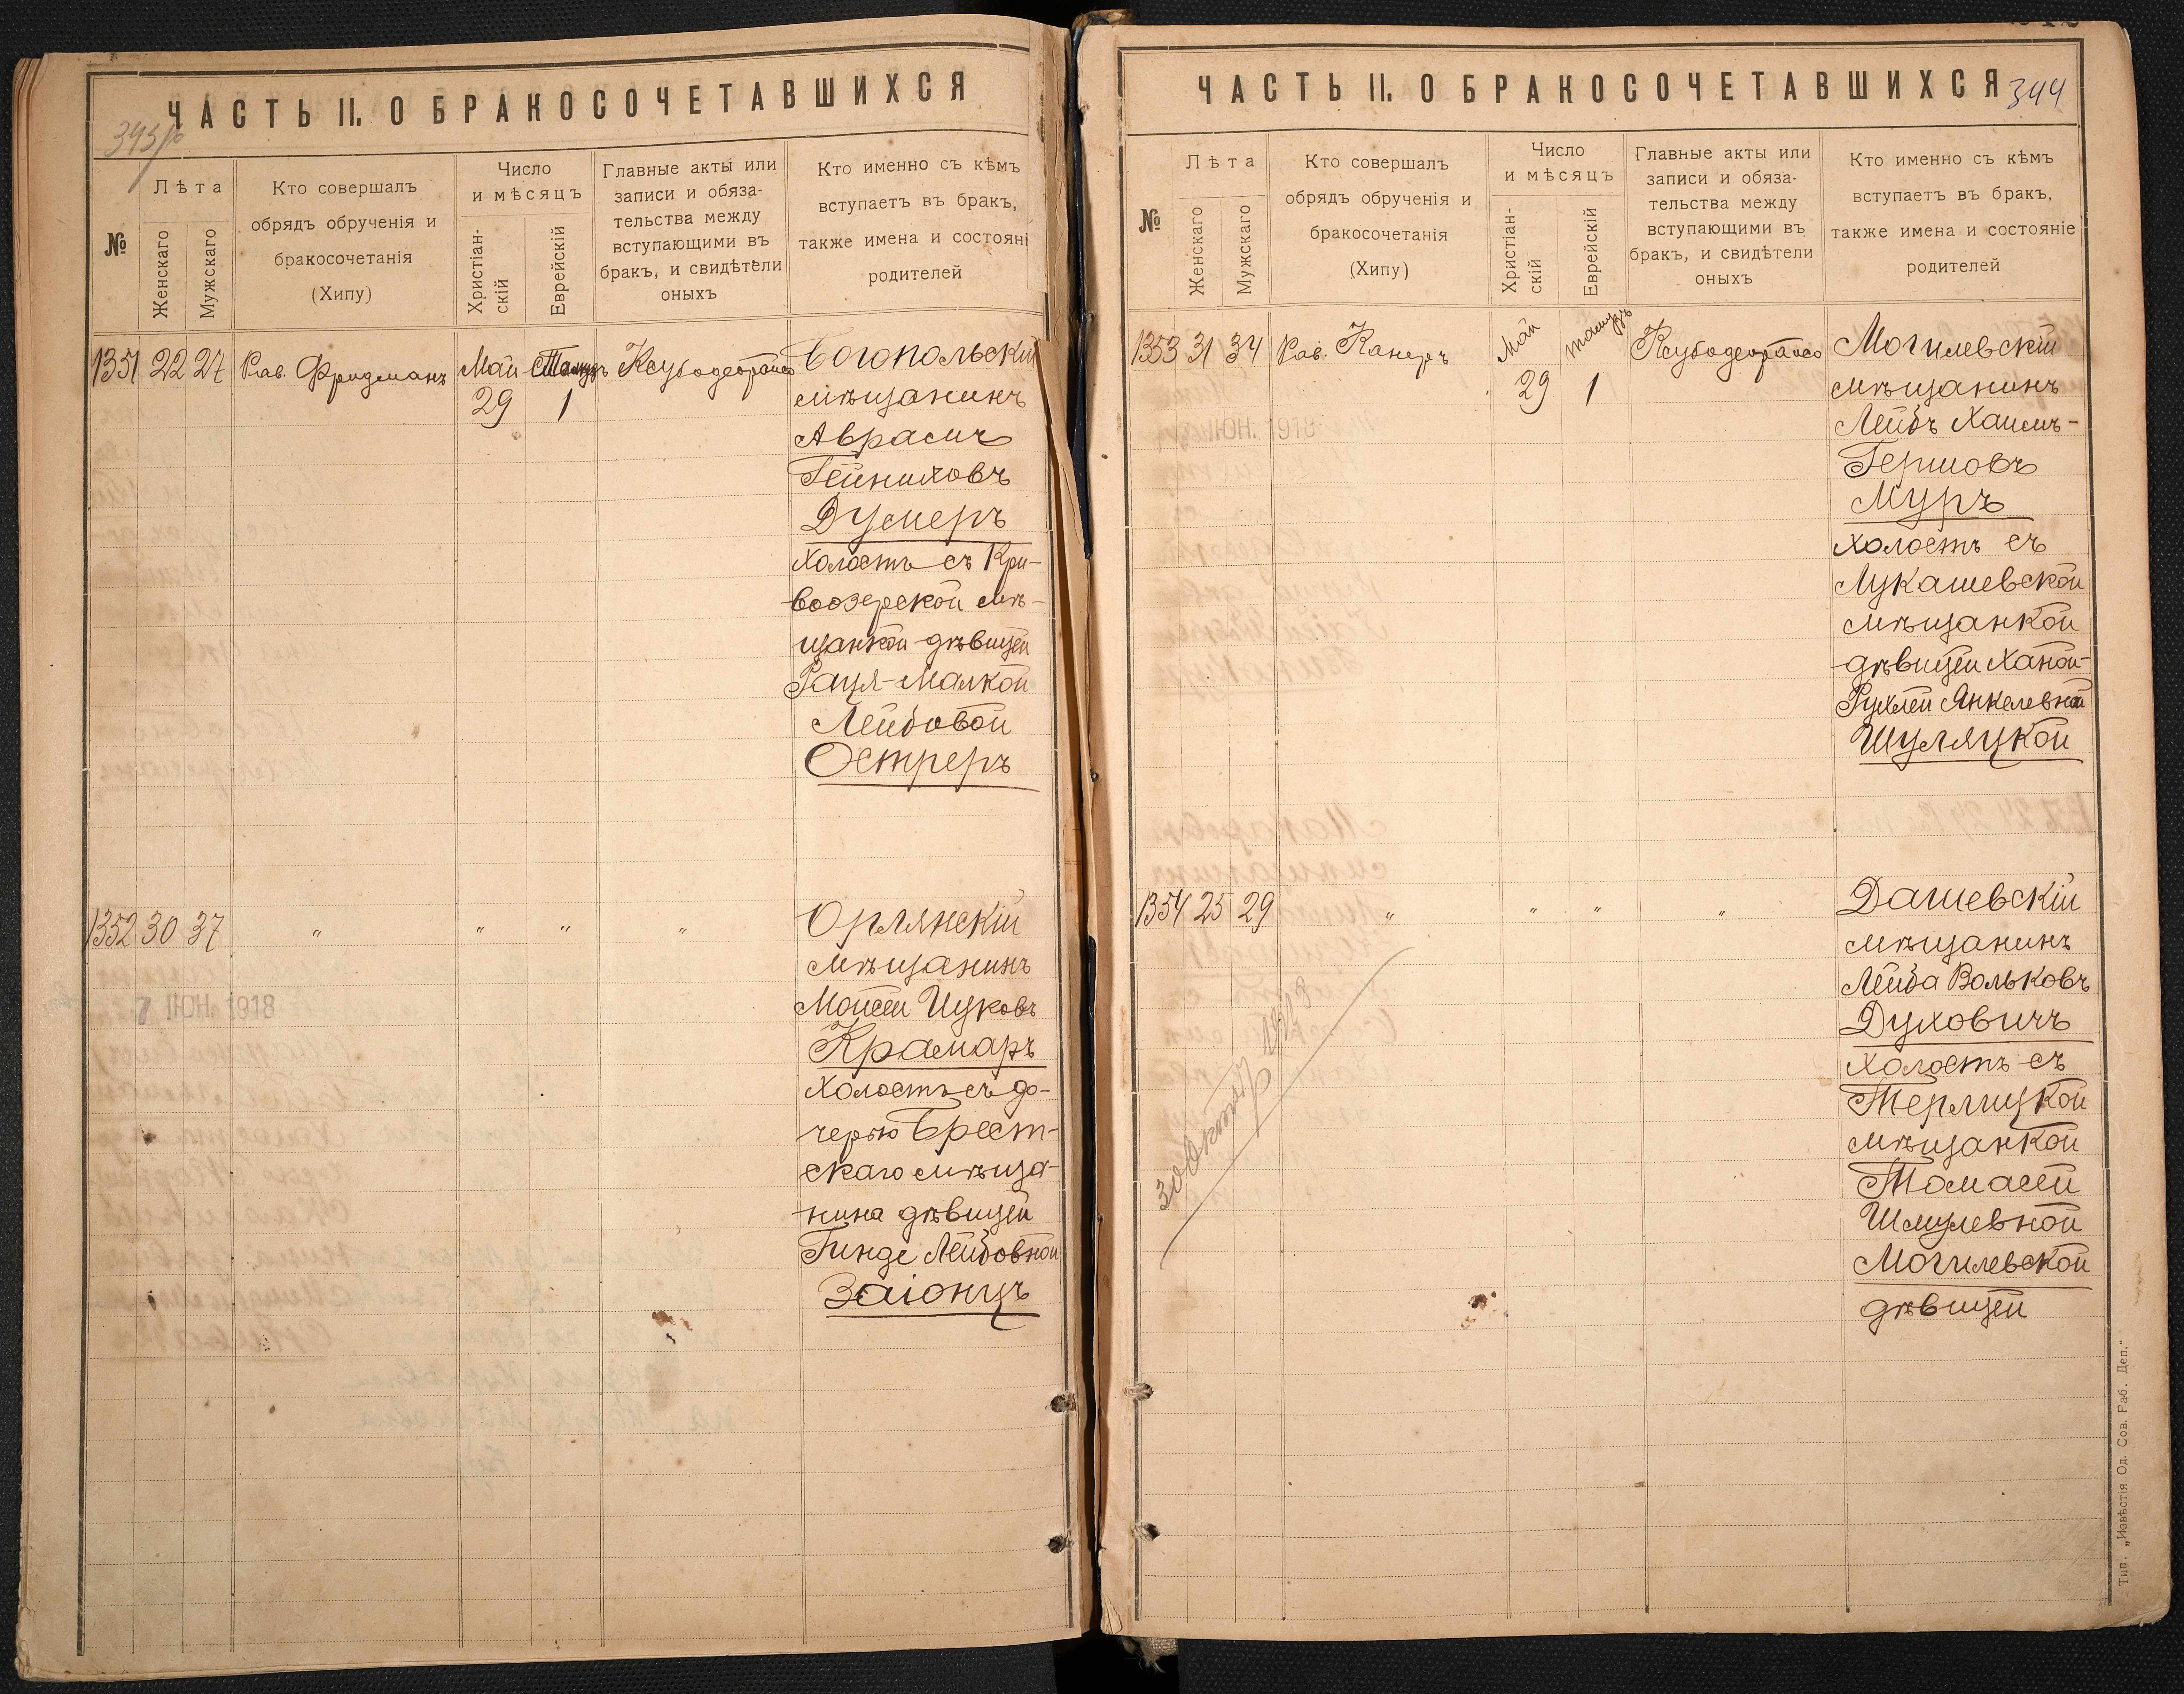 ЧАСТЬ II. О БРАКОСОЧЕТАВШИХСЯ
№
Лѣта
Женскаго
Мужскаго
Кто совершалъ
обрядъ обрученія и
бракосочетанія
(Хипу)
Число
и мѣсяцъ
Христіан-
скій
Еврейскій
Главные акты или
записи и обяза-
тельства между
вступающими въ
бракъ, и свидѣтели
оныхъ
Кто именно съ кѣмъ
вступаетъ въ бракъ,
также имена и состояні
родителей
1351 22 27 Рав. Фридманъ Май Тамузъ Богопольскій
29 1 мѣщанинъ
Аврамъ
Гейниховъ
Дусмеръ
холостъ съ Кри-
воозерской мѣ-
щанкой дѣвицей
Раця-Малкой
Лейбовой
Острeръ
1352 30 37 " " " " Орлянскій
мѣщанинъ
7 ІЮН. 1918
Мойсей Ицковъ
Крамаръ
холостъ съ до-
черью Брест-
скаго мѣща-
нина дѣвицей
Гинде Лейбовной
Заіонцъ
ЧАСТЬ II. О БРАКОСОЧЕТАВШИХСЯ
344
№
Лѣта
Женскаго
Мужскаго
Кто совершалъ
обрядъ обрученія и
бракосочетанія
(Хипу)
Число
и мѣсяцъ
Христіан-
скій
Еврейскій
Главные акты или
записи и обяза-
тельства между
вступающими въ
бракъ, и свидѣтели
оныхъ
Кто именно съ кѣмъ
вступаетъ въ бракъ,
также имена и состояніе
родителей
1353 31 34 Рав. Канеръ Май тамузъ Могилевскій
29 1 мѣщанинъ
ІЮН. 1918
Лейбъ Хаимъ-
Гершовъ
Муръ
холостъ съ
Лукашевской
мѣщанкой
дѣвицей Ханой-
Рухлей Янкелевной
Шуляцкой
1354 25 29 " " " " Дашевскій
мѣщанинъ
Лейба Вольковъ
Духовичъ
холостъ съ
Терлицкой
мѣщанкой
Томасей
Шмулевной
Могилевской
дѣвицей
Тип. „Извѣстія Од. Сов. Раб. Деп."